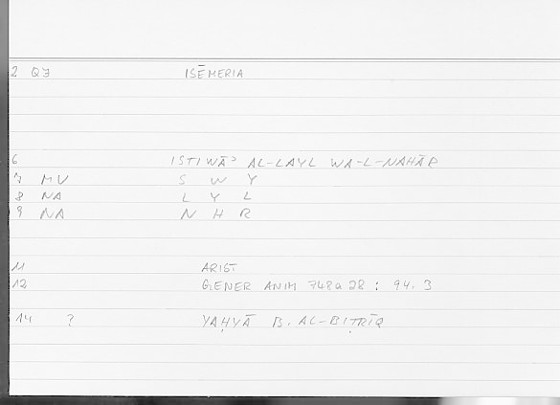 2 QJ ISĒMERIA
6 ISTIWĀʾ AL-LAYL WA-L-NAHĀR
7 MV S W Y
8 NA L Y L
9 NA N H R
11 ARIST
12 GENER ANIM 748a28 : 94.3
14 ? YAḤYĀ B. AL-BIṬRĪQ